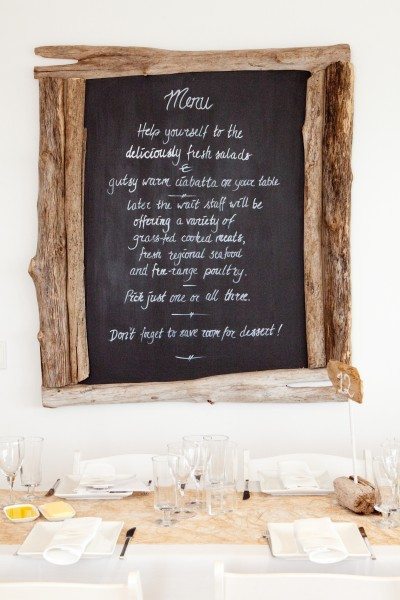 Menu
Help yourself to the
deliciously fresh salads
&
gutsy warm ciabatta on your table
Later the wait staff will be
offering a variety of
grass-fed cooked meats,
fresh regional seafood
and free-range poultry.
Pick just one or all three.
Don't forget to save room for dessert!